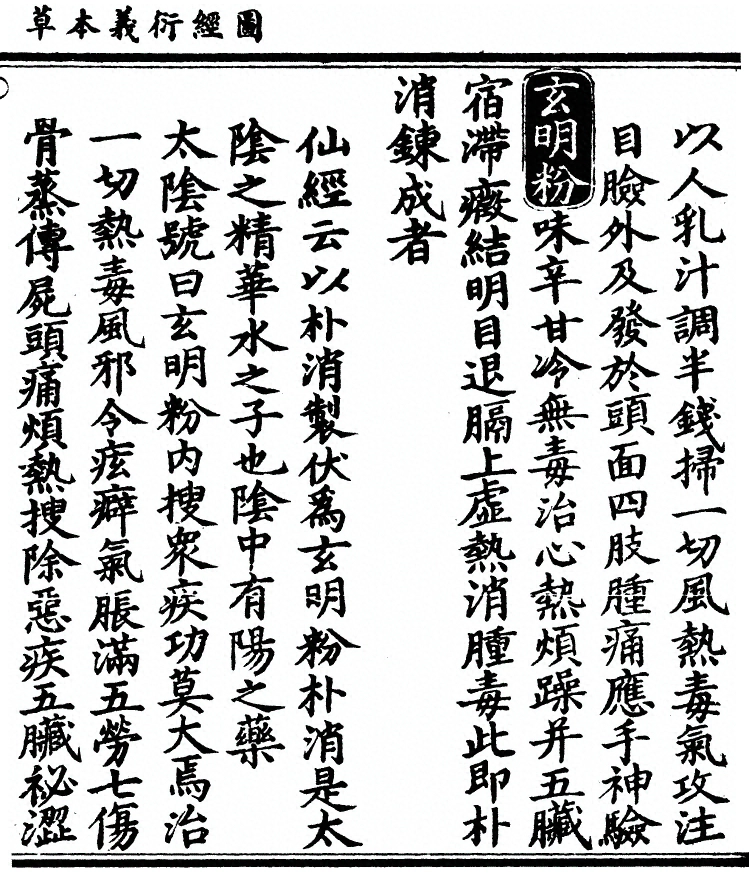 圖經衍義本草
以人乳汁調半錢掃一切風熱毒氣攻注
目臉外及發於頭面四肢腫痛應手神驗
玄明粉味辛甘冷無毒治心熱煩躁并五臟
宿滯癥結明目退膈上虛熱消腫毒此即朴
消鍊成者
仙經云以朴消製伏爲玄明粉朴消是太
陰之精華水之子也陰中有陽之藥
太陰號曰玄明粉內搜衆疾功莫大焉治
一切熱毒風邪令痃癖氣脹滿五勞七傷
骨蒸傳屍頭痛煩熱搜除惡疾五臟祕澀